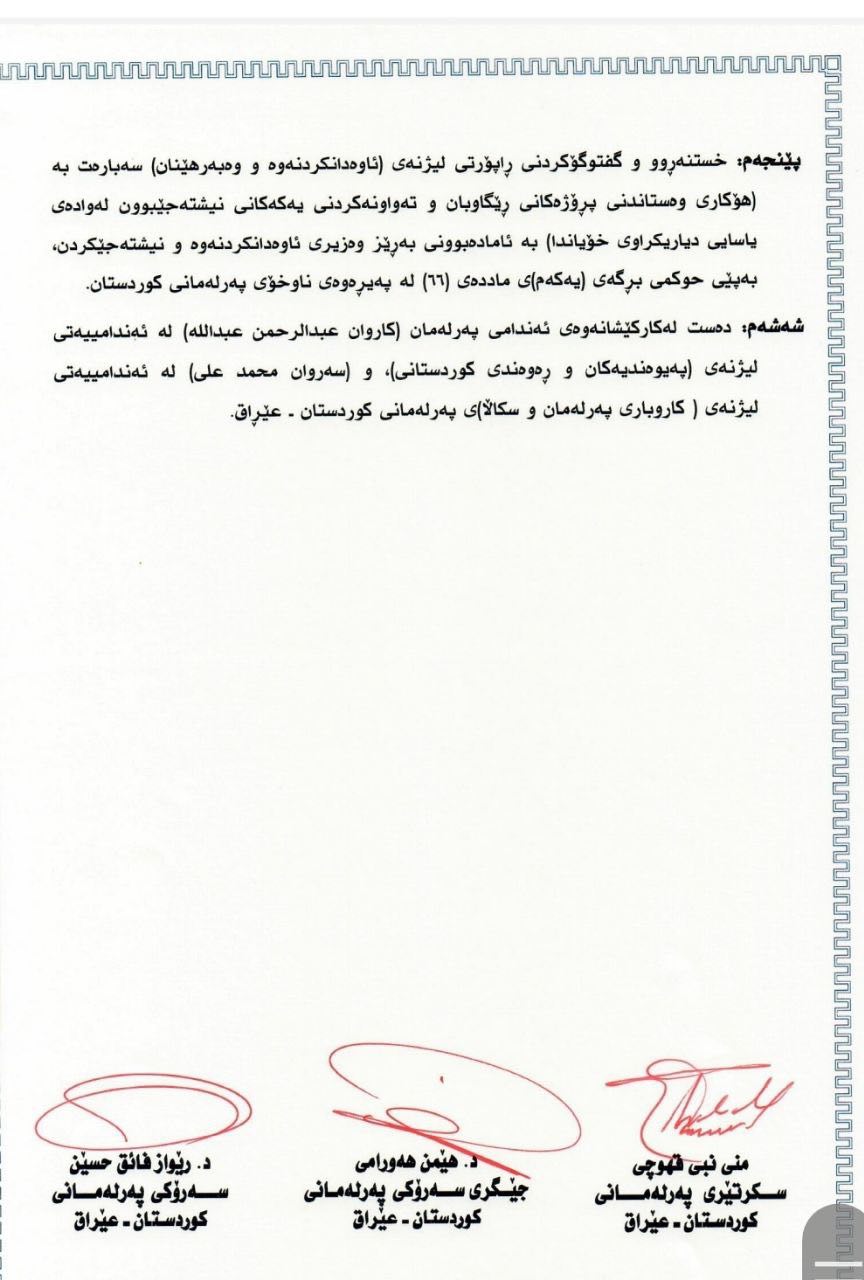 پێنجەم: خستنەڕوو و گفتوگۆکردنی ڕاپۆرتی لیژنەی (ئاوەدانکردنەوە و وەبەرهێنان) سەبارەت بە
(هۆکاری وەستاندنی پرۆژەکانی ڕێگاوبان و تەواونەکردنی یەکەکانی نیشتەجێبوون لەوادەی
یاسایی دیاریکراوی خۆیاندا) بە ئامادەبوونی بەڕێز وەزیری ئاوەدانکردنەوە و نیشتەجێکردن،
بەپێی حوکمی برگەی (یەکەم)ی ماددەی (٦٦) لە پەیرەوەی ناوخۆی پەرلەمانی کوردستان.
شەشەم: دەست لەکارکێشانەوەی ئەندامی پەرلەمان (کاروان عبدالرحمن عبدالله) لە ئەندامییەتی
لیژنەی (پەیوەندیەکان و ڕەوەندی کوردستانی)، و (سەروان محمد علی) لە ئەندامییەتی
لیژنەی ( کاروباری پەرلەمان و سکاڵا)ی پەرلەمانی کوردستان ـ عێراق.
منی نبی قهوچی
سـکرتێری پەرلەمـــانی
کوردستان ـ عێراق
د. هێمن هەورامی
جێـگری سـەرۆکی پەرلەمـانی
کوردستان ـ عێراق
د. رێواز فائق حسێن
ســەرۆکی پەرلەمـــانی
کوردستان ـ عێراق